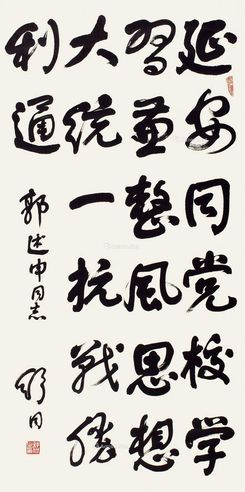 延安同党校学
習並整風思想
大统一抗戰勝
利通
郭述申同志
舒同